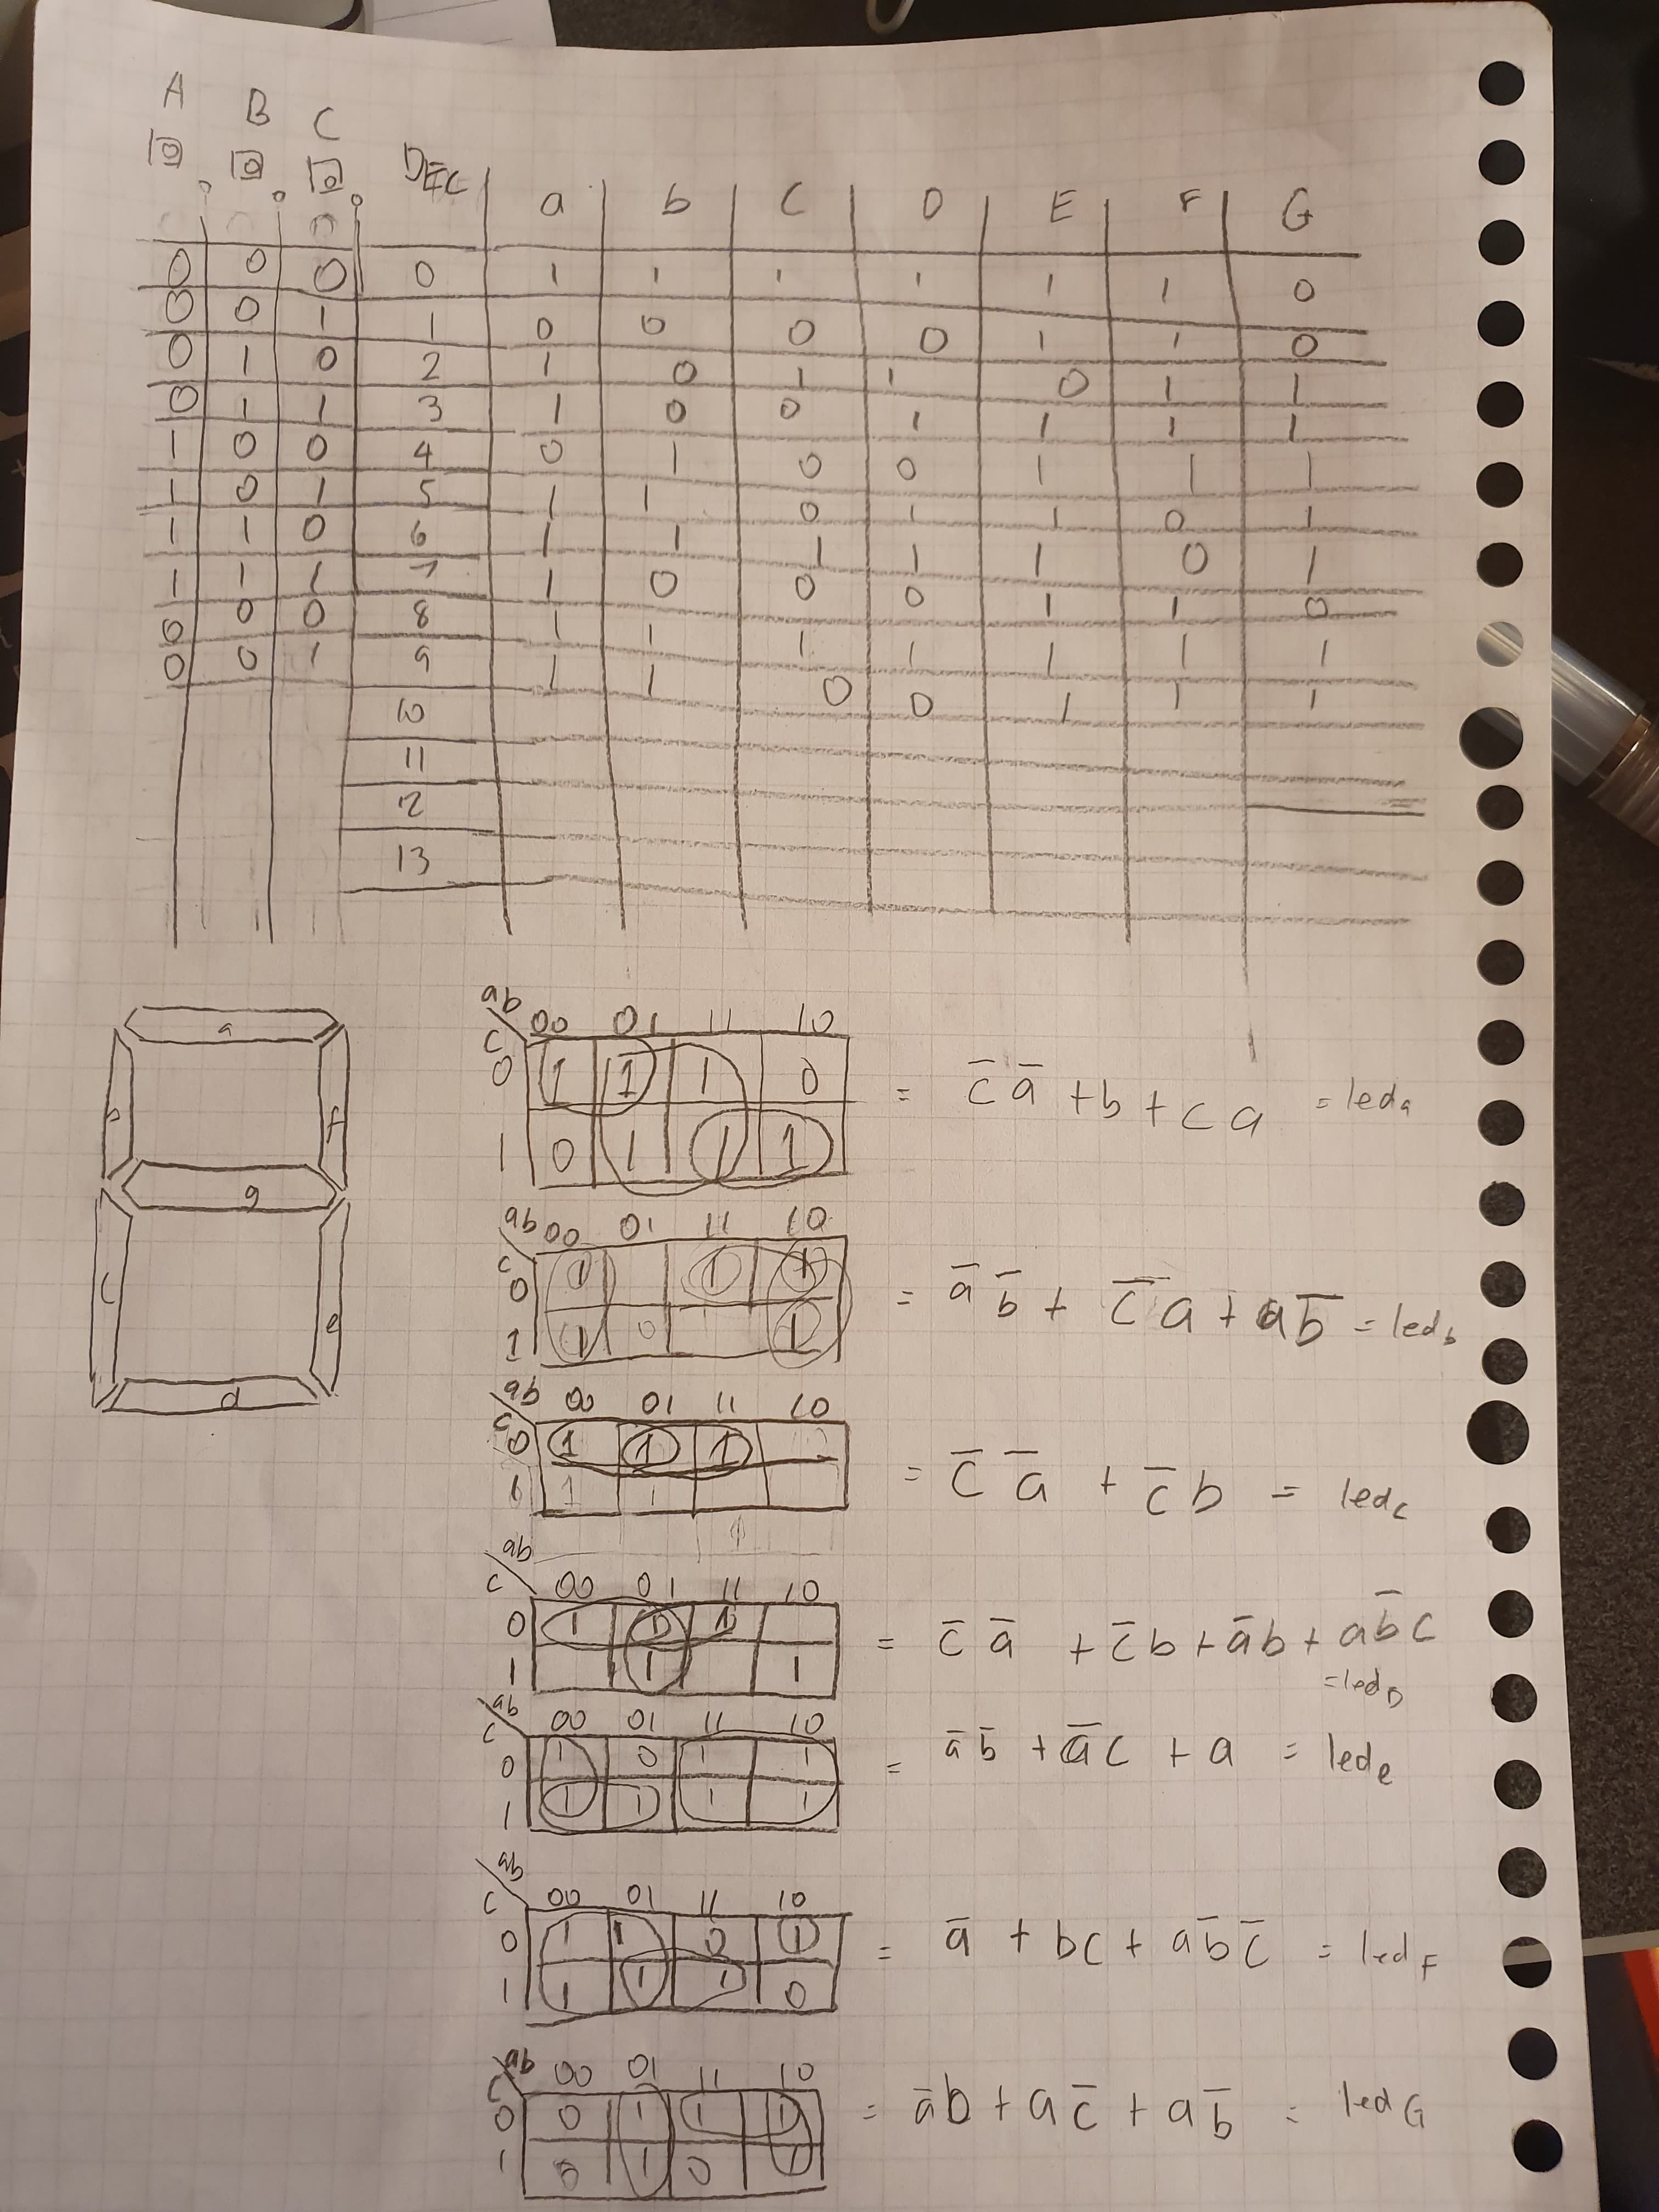 A B C
0 0 0 DEC a b c D E F G
0 0 0 0 1 1 1 1 1 1 0
0 0 1 1 0 0 0 0 1 1 0
0 1 0 2 1 0 1 1 0 1 1
0 1 1 3 1 0 0 1 1 1 1
1 0 0 4 0 1 0 0 1 1 1
1 0 1 5 1 1 0 1 1 0 1
1 1 0 6 1 1 1 1 1 0 1
1 1 1 7 1 0 0 0 1 1 0
0 0 0 8 1 1 1 1 1 1 1
0 0 1 9 1 1 0 0 1 1 1
10
11
12
13
a
b
f
g
c
e
d
ab
c 00 01 11 10
0 1 1 1 0
1 0 1 1 1
= c̅ a̅ + b + c a = led a
ab
c 00 01 11 10
0 1 1 1
1 1 0 1
= a̅ b̅ + c̅ a + a b̅ = led b
ab
c 00 01 11 10
0 1 1 1
1 1 1
= c̅ a̅ + c̅ b = led c
ab
c 00 01 11 10
0 1 1 1
1 1 1
= c̅ a̅ + c̅ b + a̅ b + a b̅ c
= led D
ab
c 00 01 11 10
0 1 0 1 1
1 1 1 1 1
= a̅ b̅ + a̅ c + a = led e
ab
c 00 01 11 10
0 1 1 0 1
1 1 1 1 0
= a̅ + bc + a b̅ c̅ = led F
ab
c 00 01 11 10
0 0 1 1 1
1 0 1 0 1
= a̅ b + a c̅ + a b̅ = led G